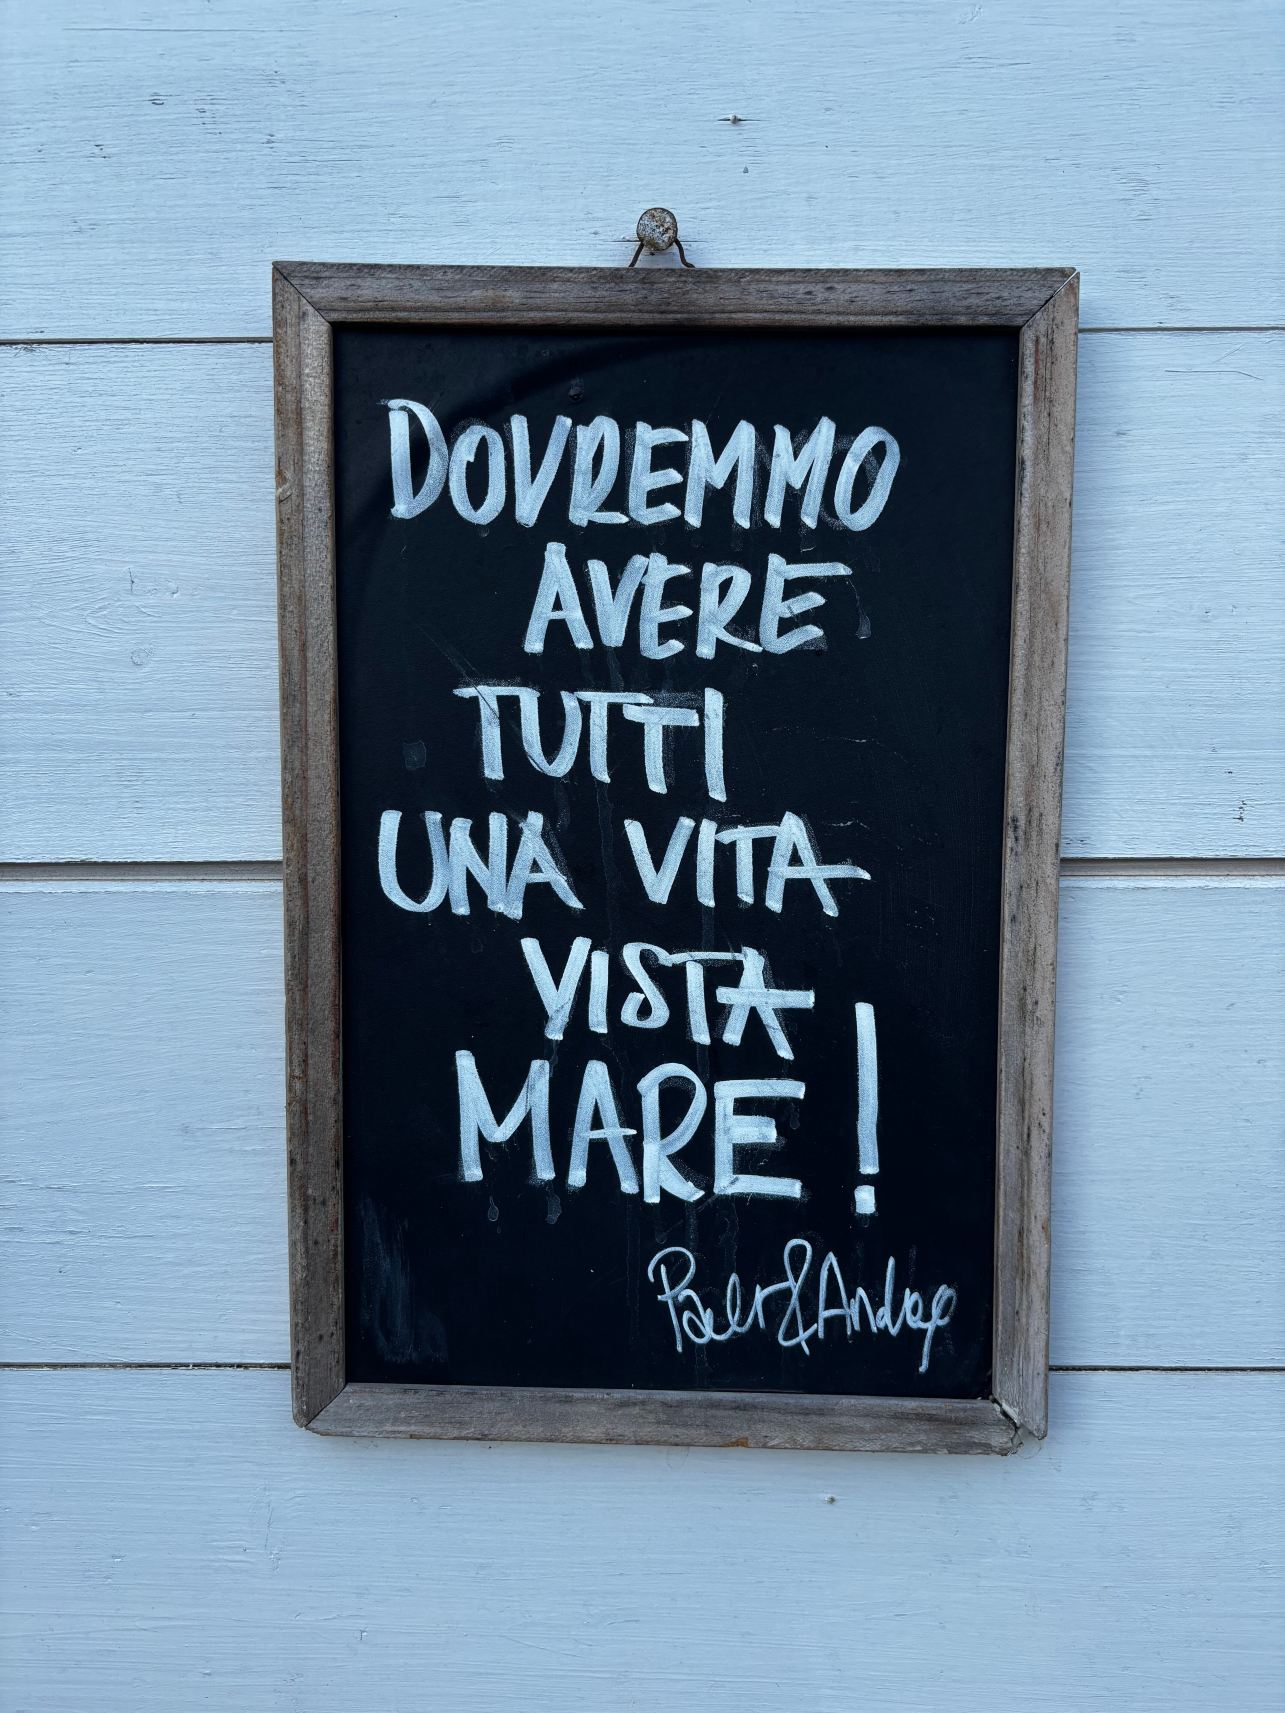 DOVREMMO
AVERE
TUTTI
UNA VITA
VISTA
MARE!
& Andrea